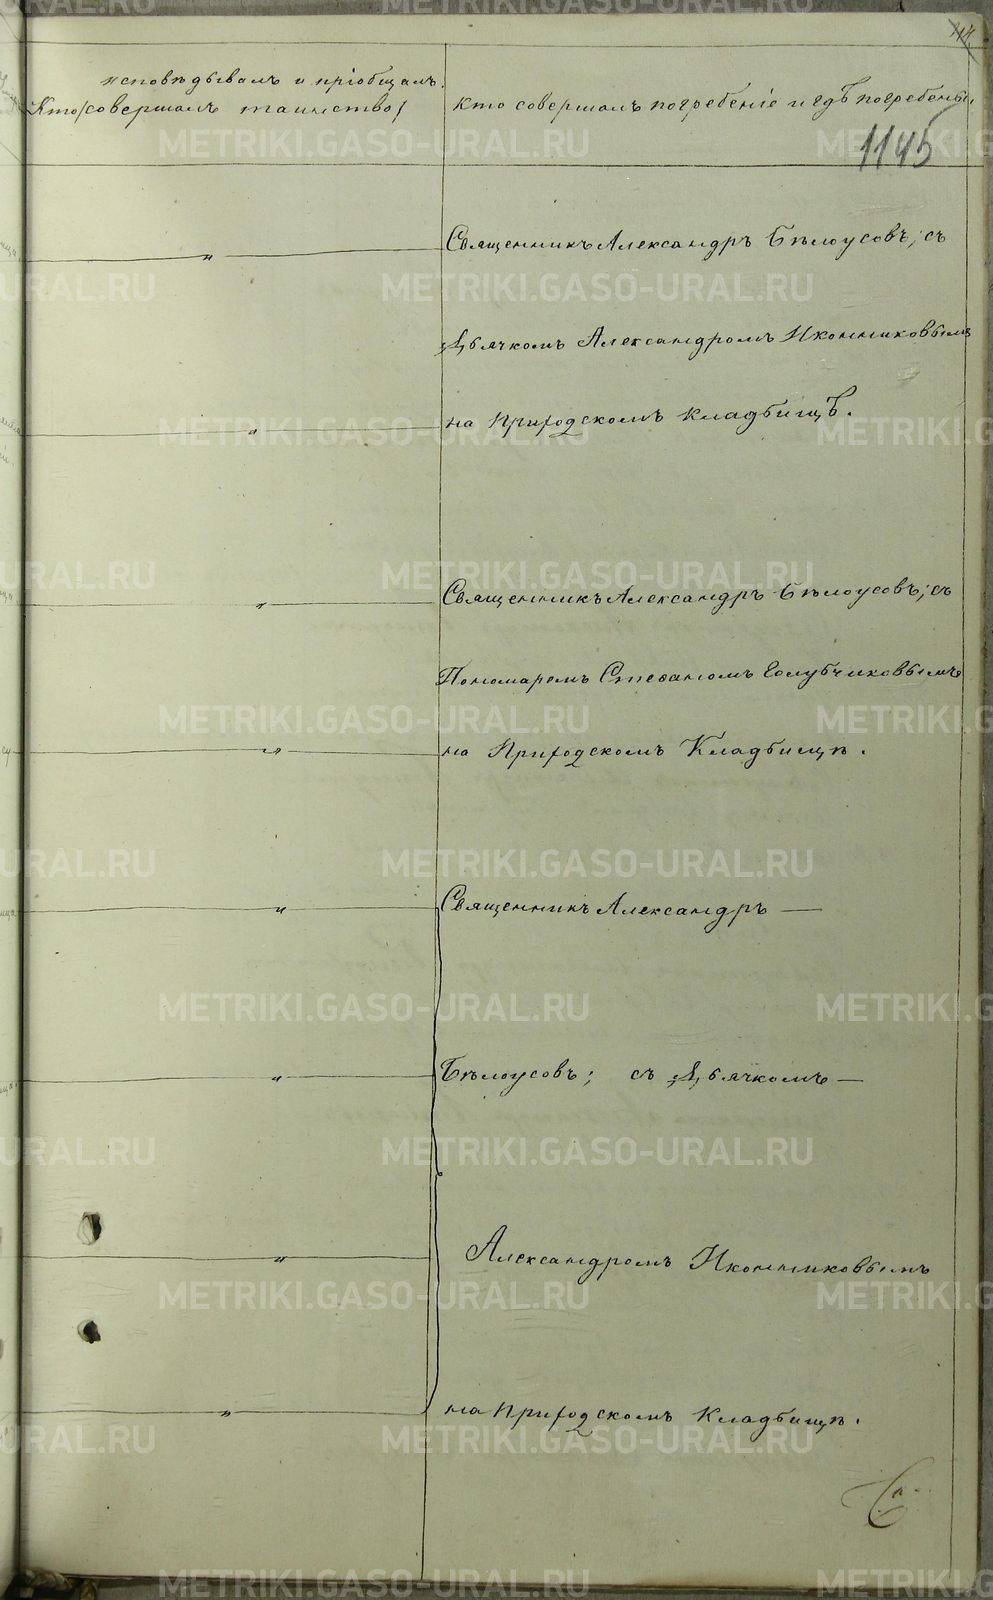 исповѣдывалъ и пріобщалъ.
Кто (совершалъ таинство)
кто совершалъ погребеніе и гдѣ погребены.
1145
Священникъ Александръ Бѣлоусовъ; съ
Дьячкомъ Александромъ Иконниковымъ
на Приходскомъ кладбищѣ.
Священникъ Александръ Бѣлоусовъ; съ
Пономаремъ Стефаномъ Голубчиковымъ
на Приходскомъ Кладбищѣ.
Священникъ Александръ —
Бѣлоусовъ; съ Дьячкомъ —
Александромъ Иконниковымъ
на Приходскомъ Кладбищѣ.
METRIKI.GASO-URAL.RU